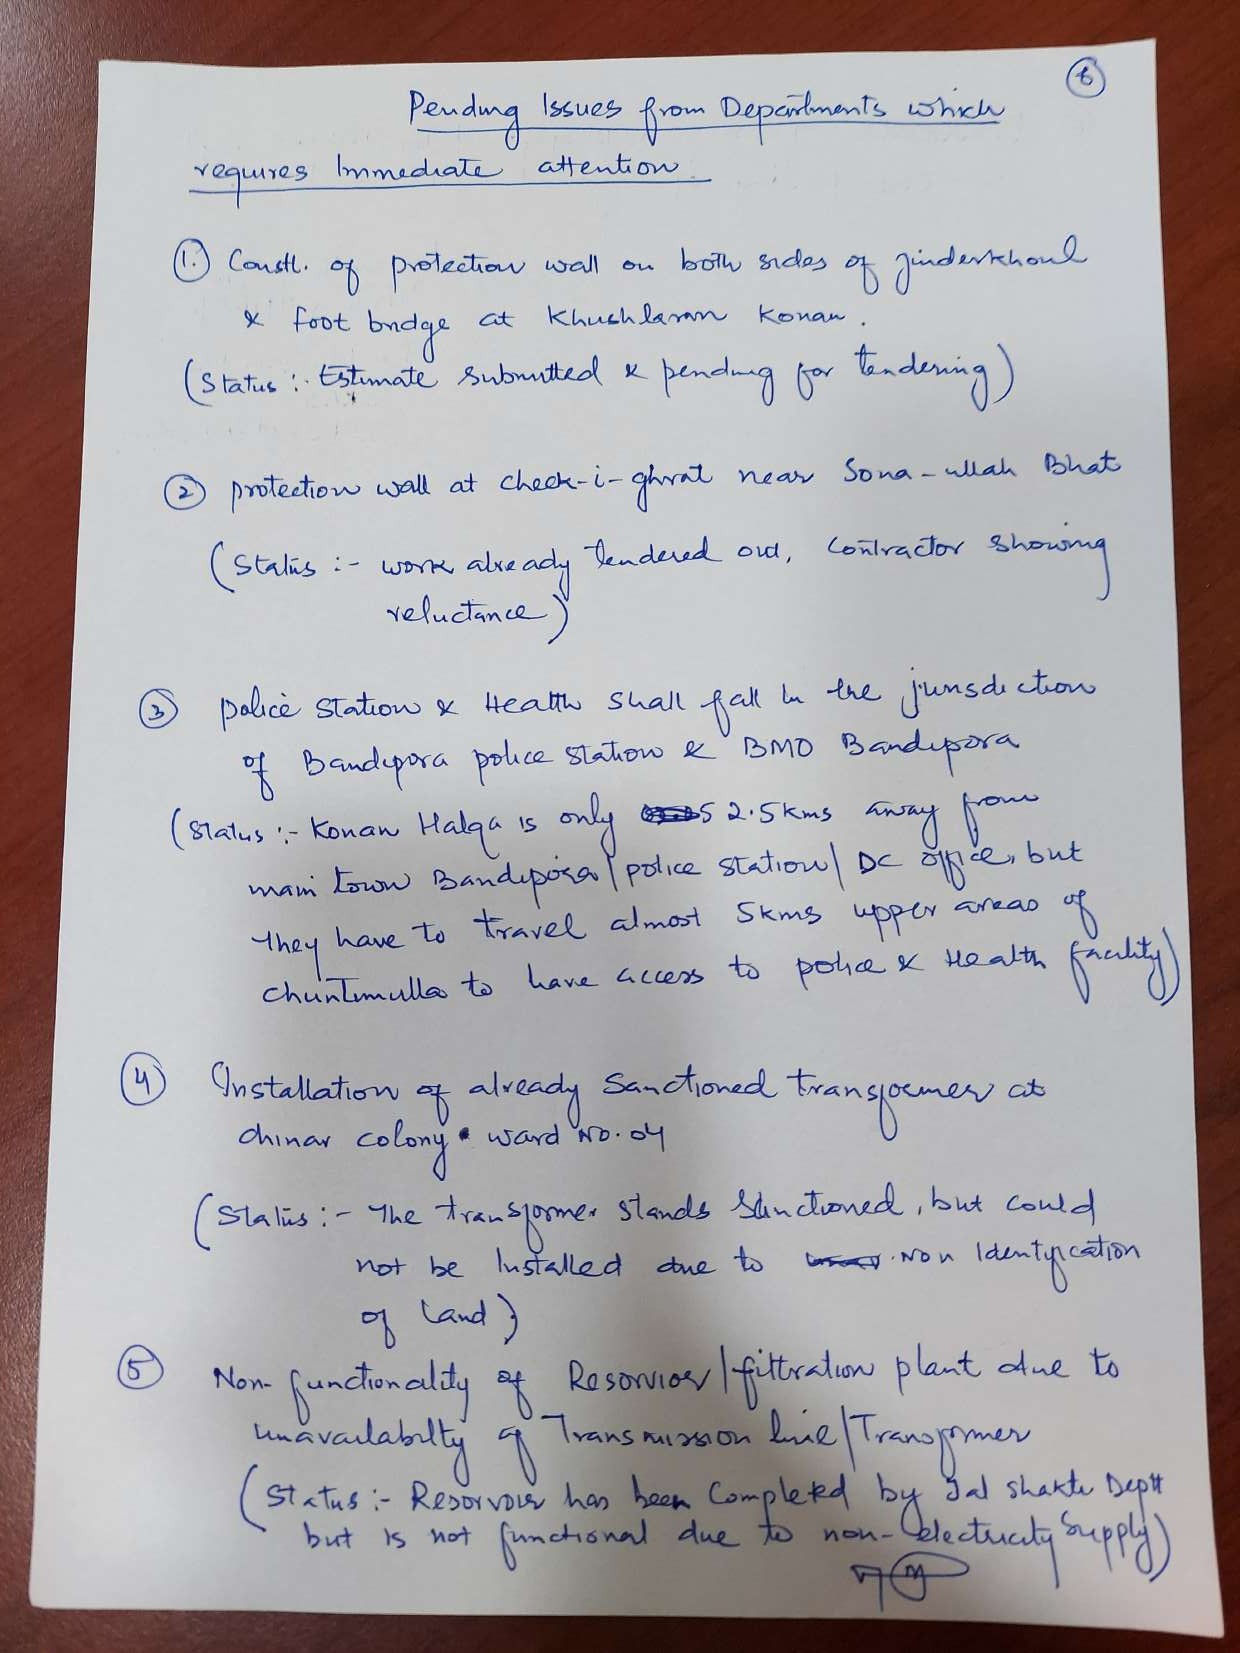 6
Pending Issues from Departments which
requires Immediate attention.
1. Constt. of protection wall on both sides of Jinderkhoul
& foot bridge at Khushlaran Konan.
(Status :- Estimate submitted & pending for tendering)
2 protection wall at check-i-ghrat near Sona-ullah Bhat
(Status :- work already tendered out, Contractor showing
reluctance)
3 police station & Health shall fall in the jurisdiction
of Bandipora police station & BMO Bandipora
(Status :- Konan Halqa is only 2.5 kms away from
main town Bandipora/police station/DC office, but
they have to travel almost 5kms upper areas of
chuntimulla to have access to police & Health facility)
4 Installation of already Sanctioned transformer at
chinar colony ward No. 04
(Status :- The transformer stands Sanctioned, but could
not be Installed due to Non Identification
of Land)
5 Non-functionality of Resorvior/filtration plant due to
unavailabilty of Transmission line/Transformer
(Status :- Resorvoir has been Completed by Jal Shakti Deptt
but is not functional due to non-electricity Supply)